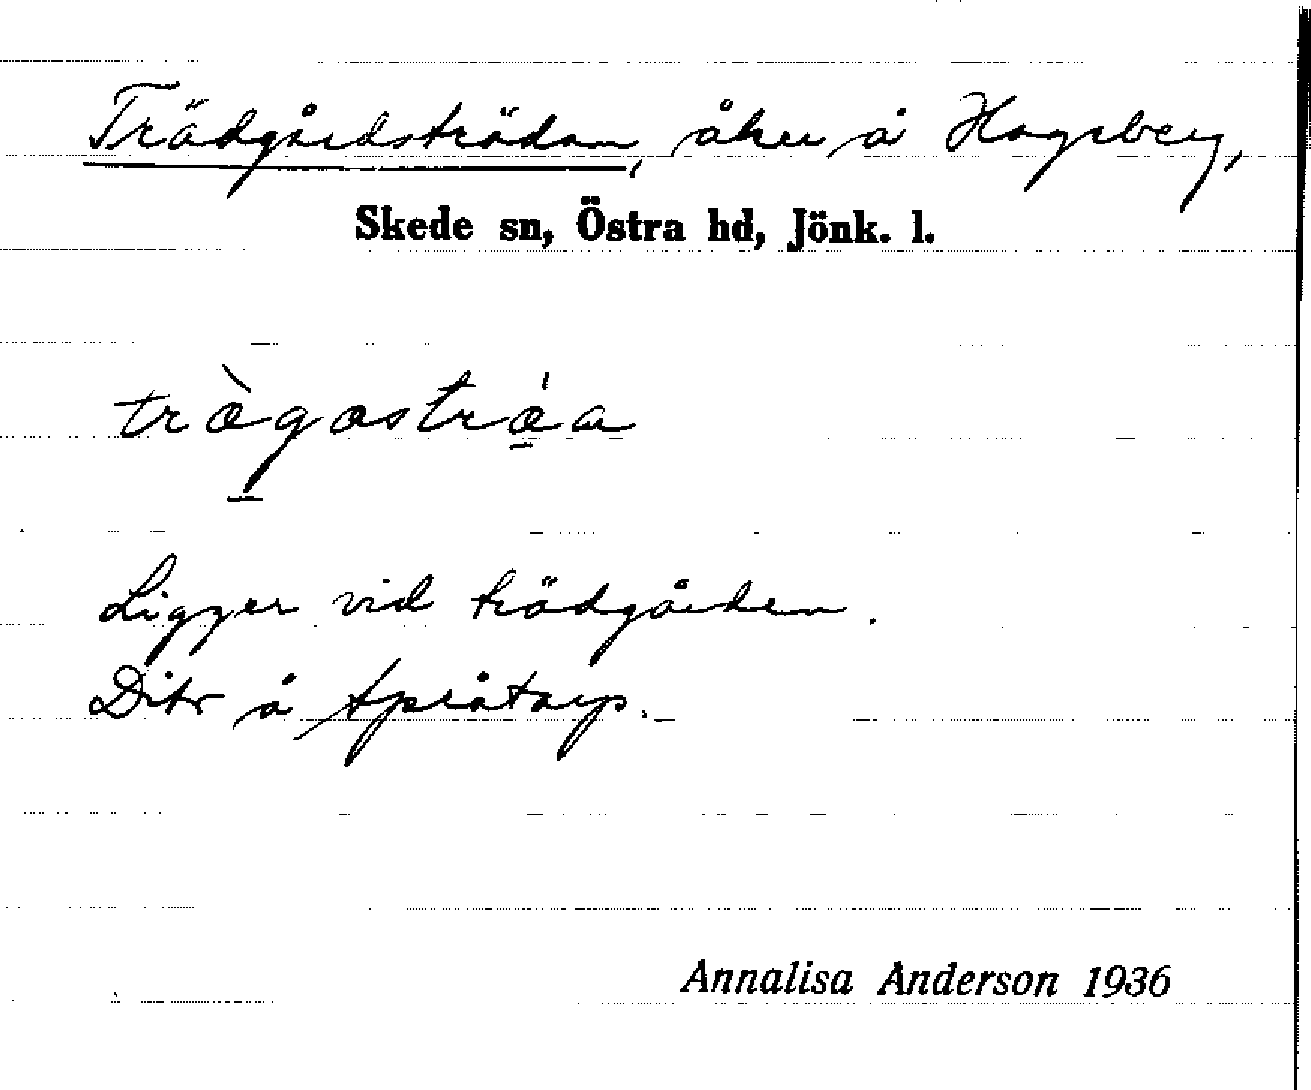 Trädgårdsträdan, åker å Hagsberg,
Skede sn, Östra hd, Jönk. l.
trägasträa
Ligger vid trädgården.
Dito å Språtarp.
Annalisa Anderson 1936